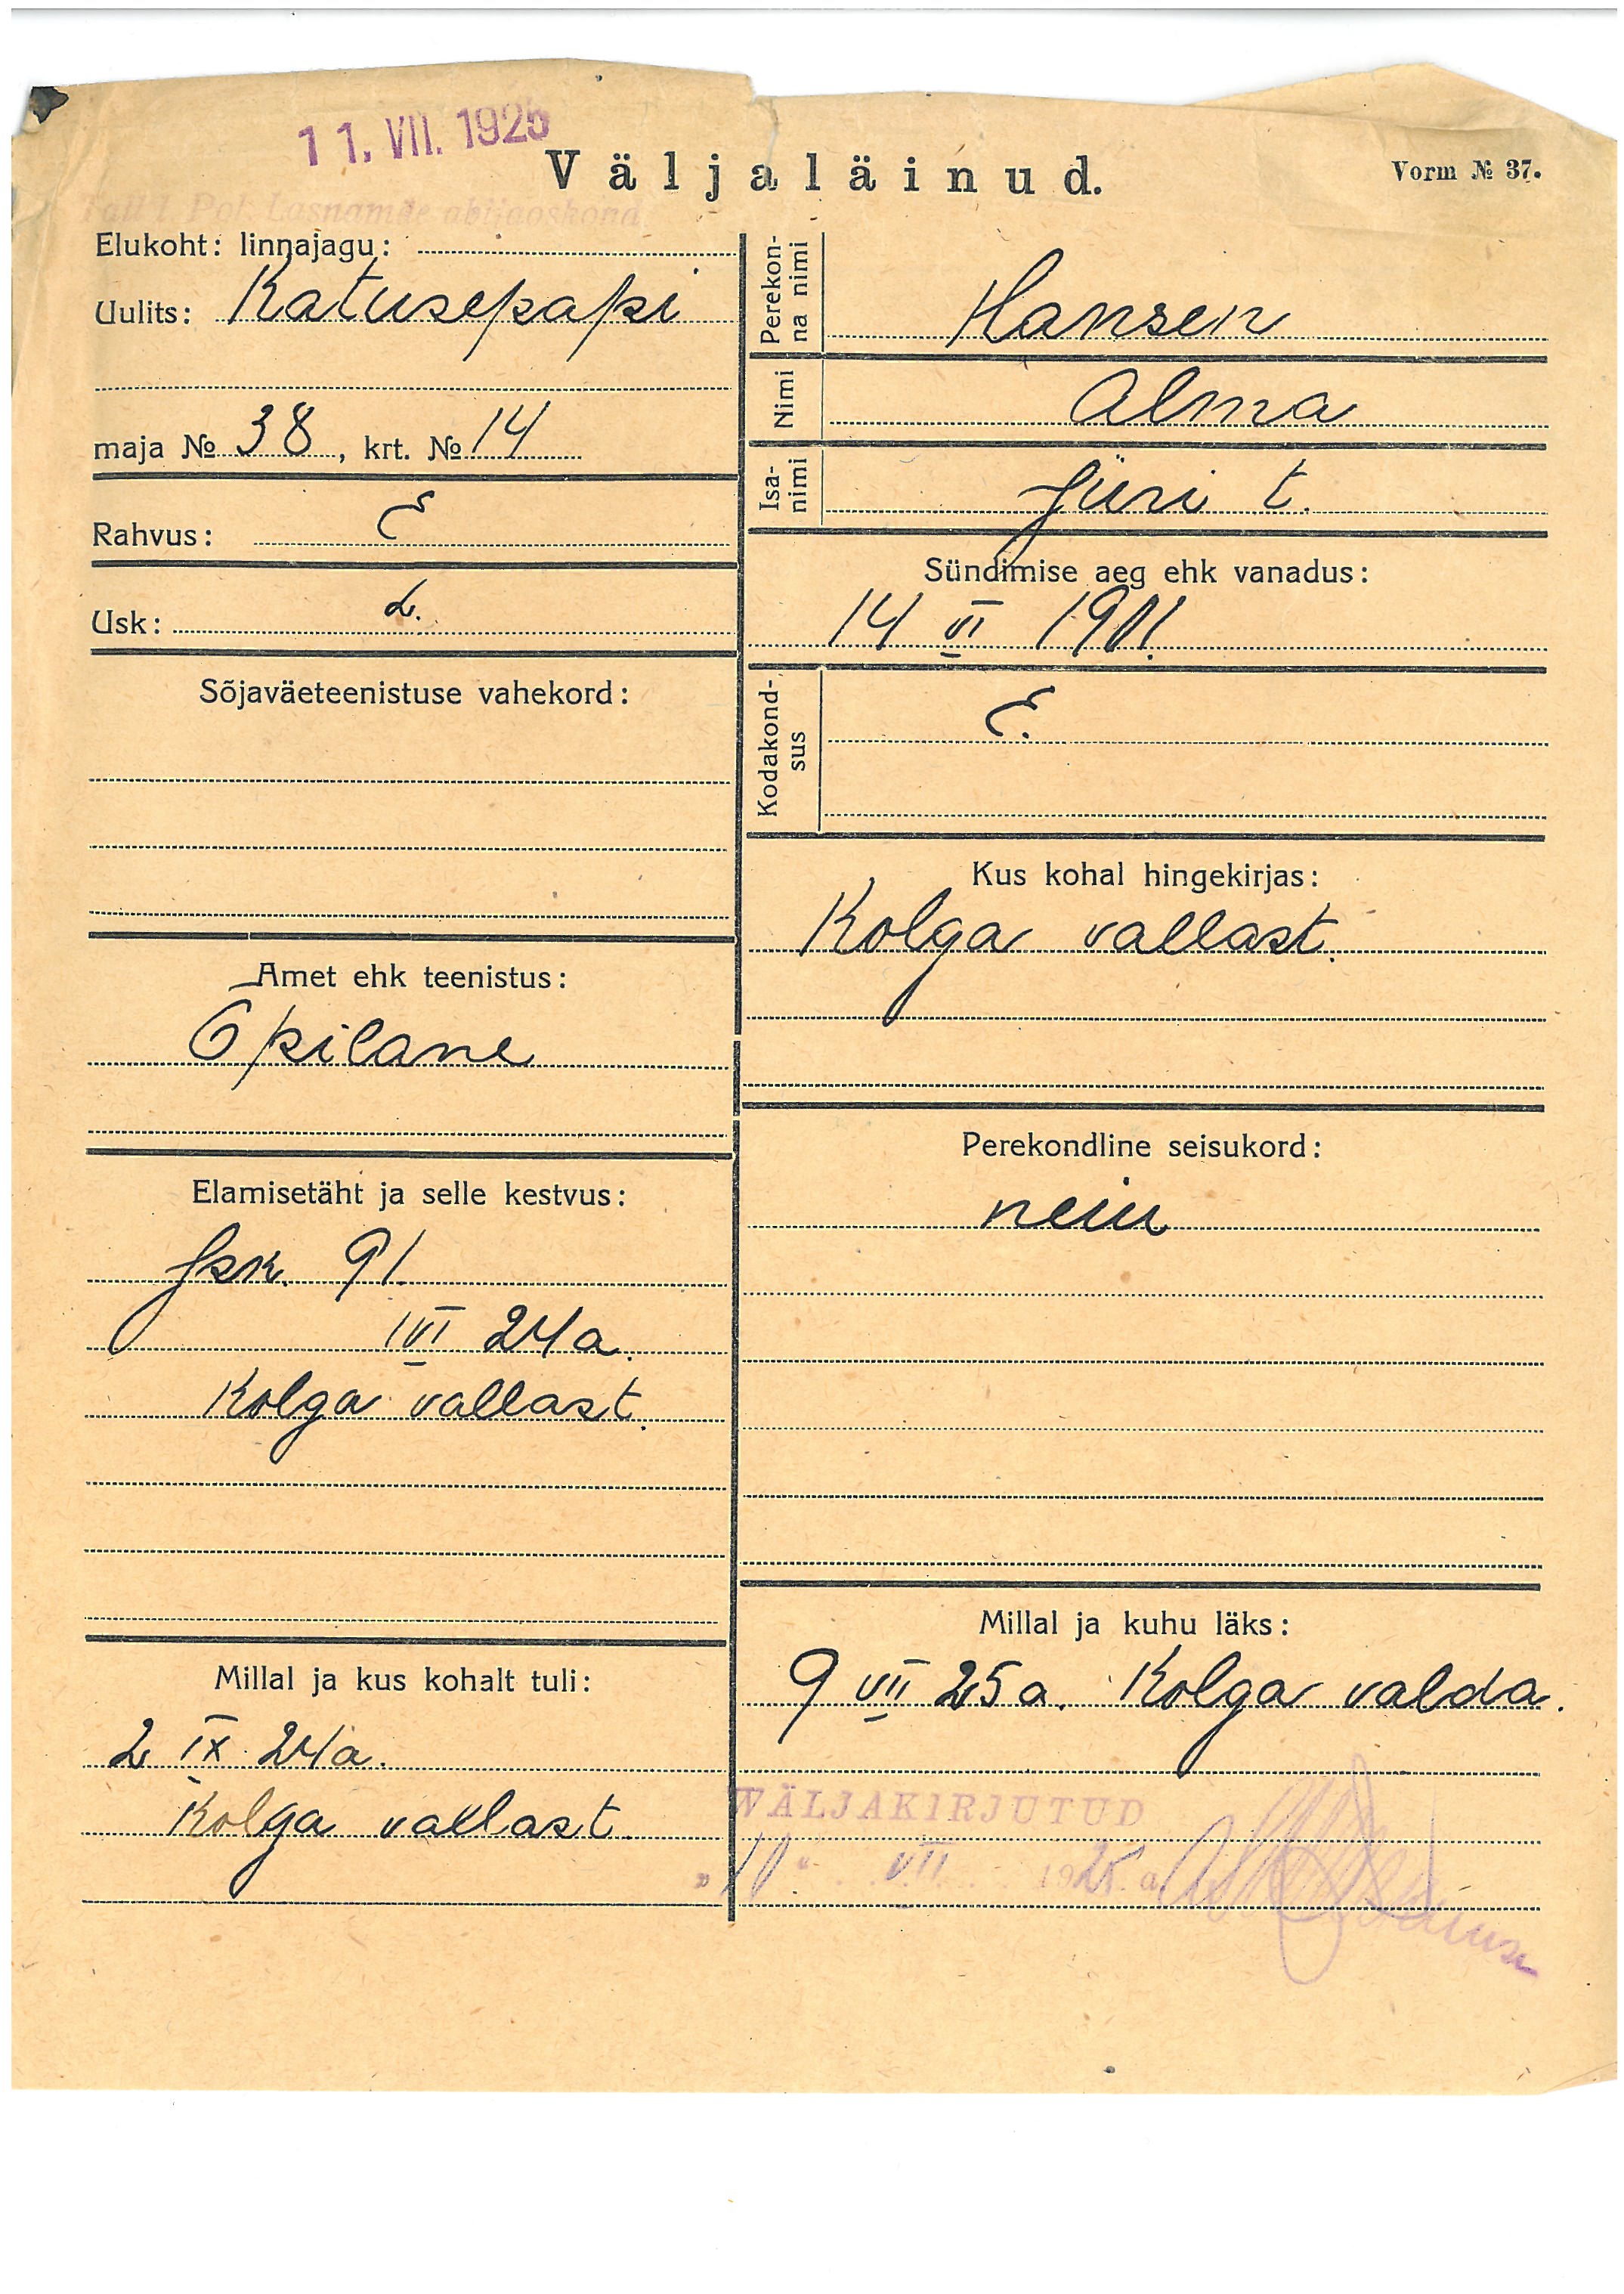 11. VII. 1925
Väljaläinud.
Vorm № 37.
Tall. 1. Pol. Lasnamäe abijaoskond
Elukoht: linnajagu:
Uulits: Katusepapi
maja № 38, krt. № 14
Rahvus: E
Usk: L.
Sõjaväeteenistuse vahekord:
Amet ehk teenistus:
Õpilane
Elamisetäht ja selle kestvus:
Isk. 91.
1 VI 24 a.
Kolga vallast.
Millal ja kus kohalt tuli:
2 IX 24 a.
Kolga vallast.
Perekonna nimi
Hansen
Nimi
Alma
Isanimi
Jüri t.
Sündimise aeg ehk vanadus:
14 VI 1901.
Kodakondsus
E.
Kus kohal hingekirjas:
Kolga vallast.
Perekondline seisukord:
neiu
Millal ja kuhu läks:
9 VII 25 a. Kolga valda.
WÄLJAKIRJUTUD
"10" VII 1925. a.